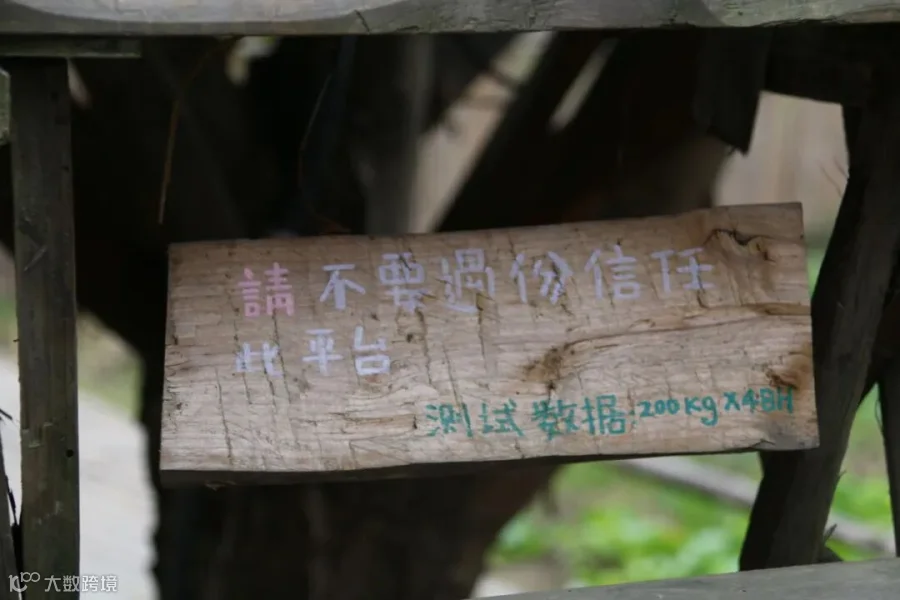 請不要過份信任
此平台
测试数据:200KgX48H
大数跨境